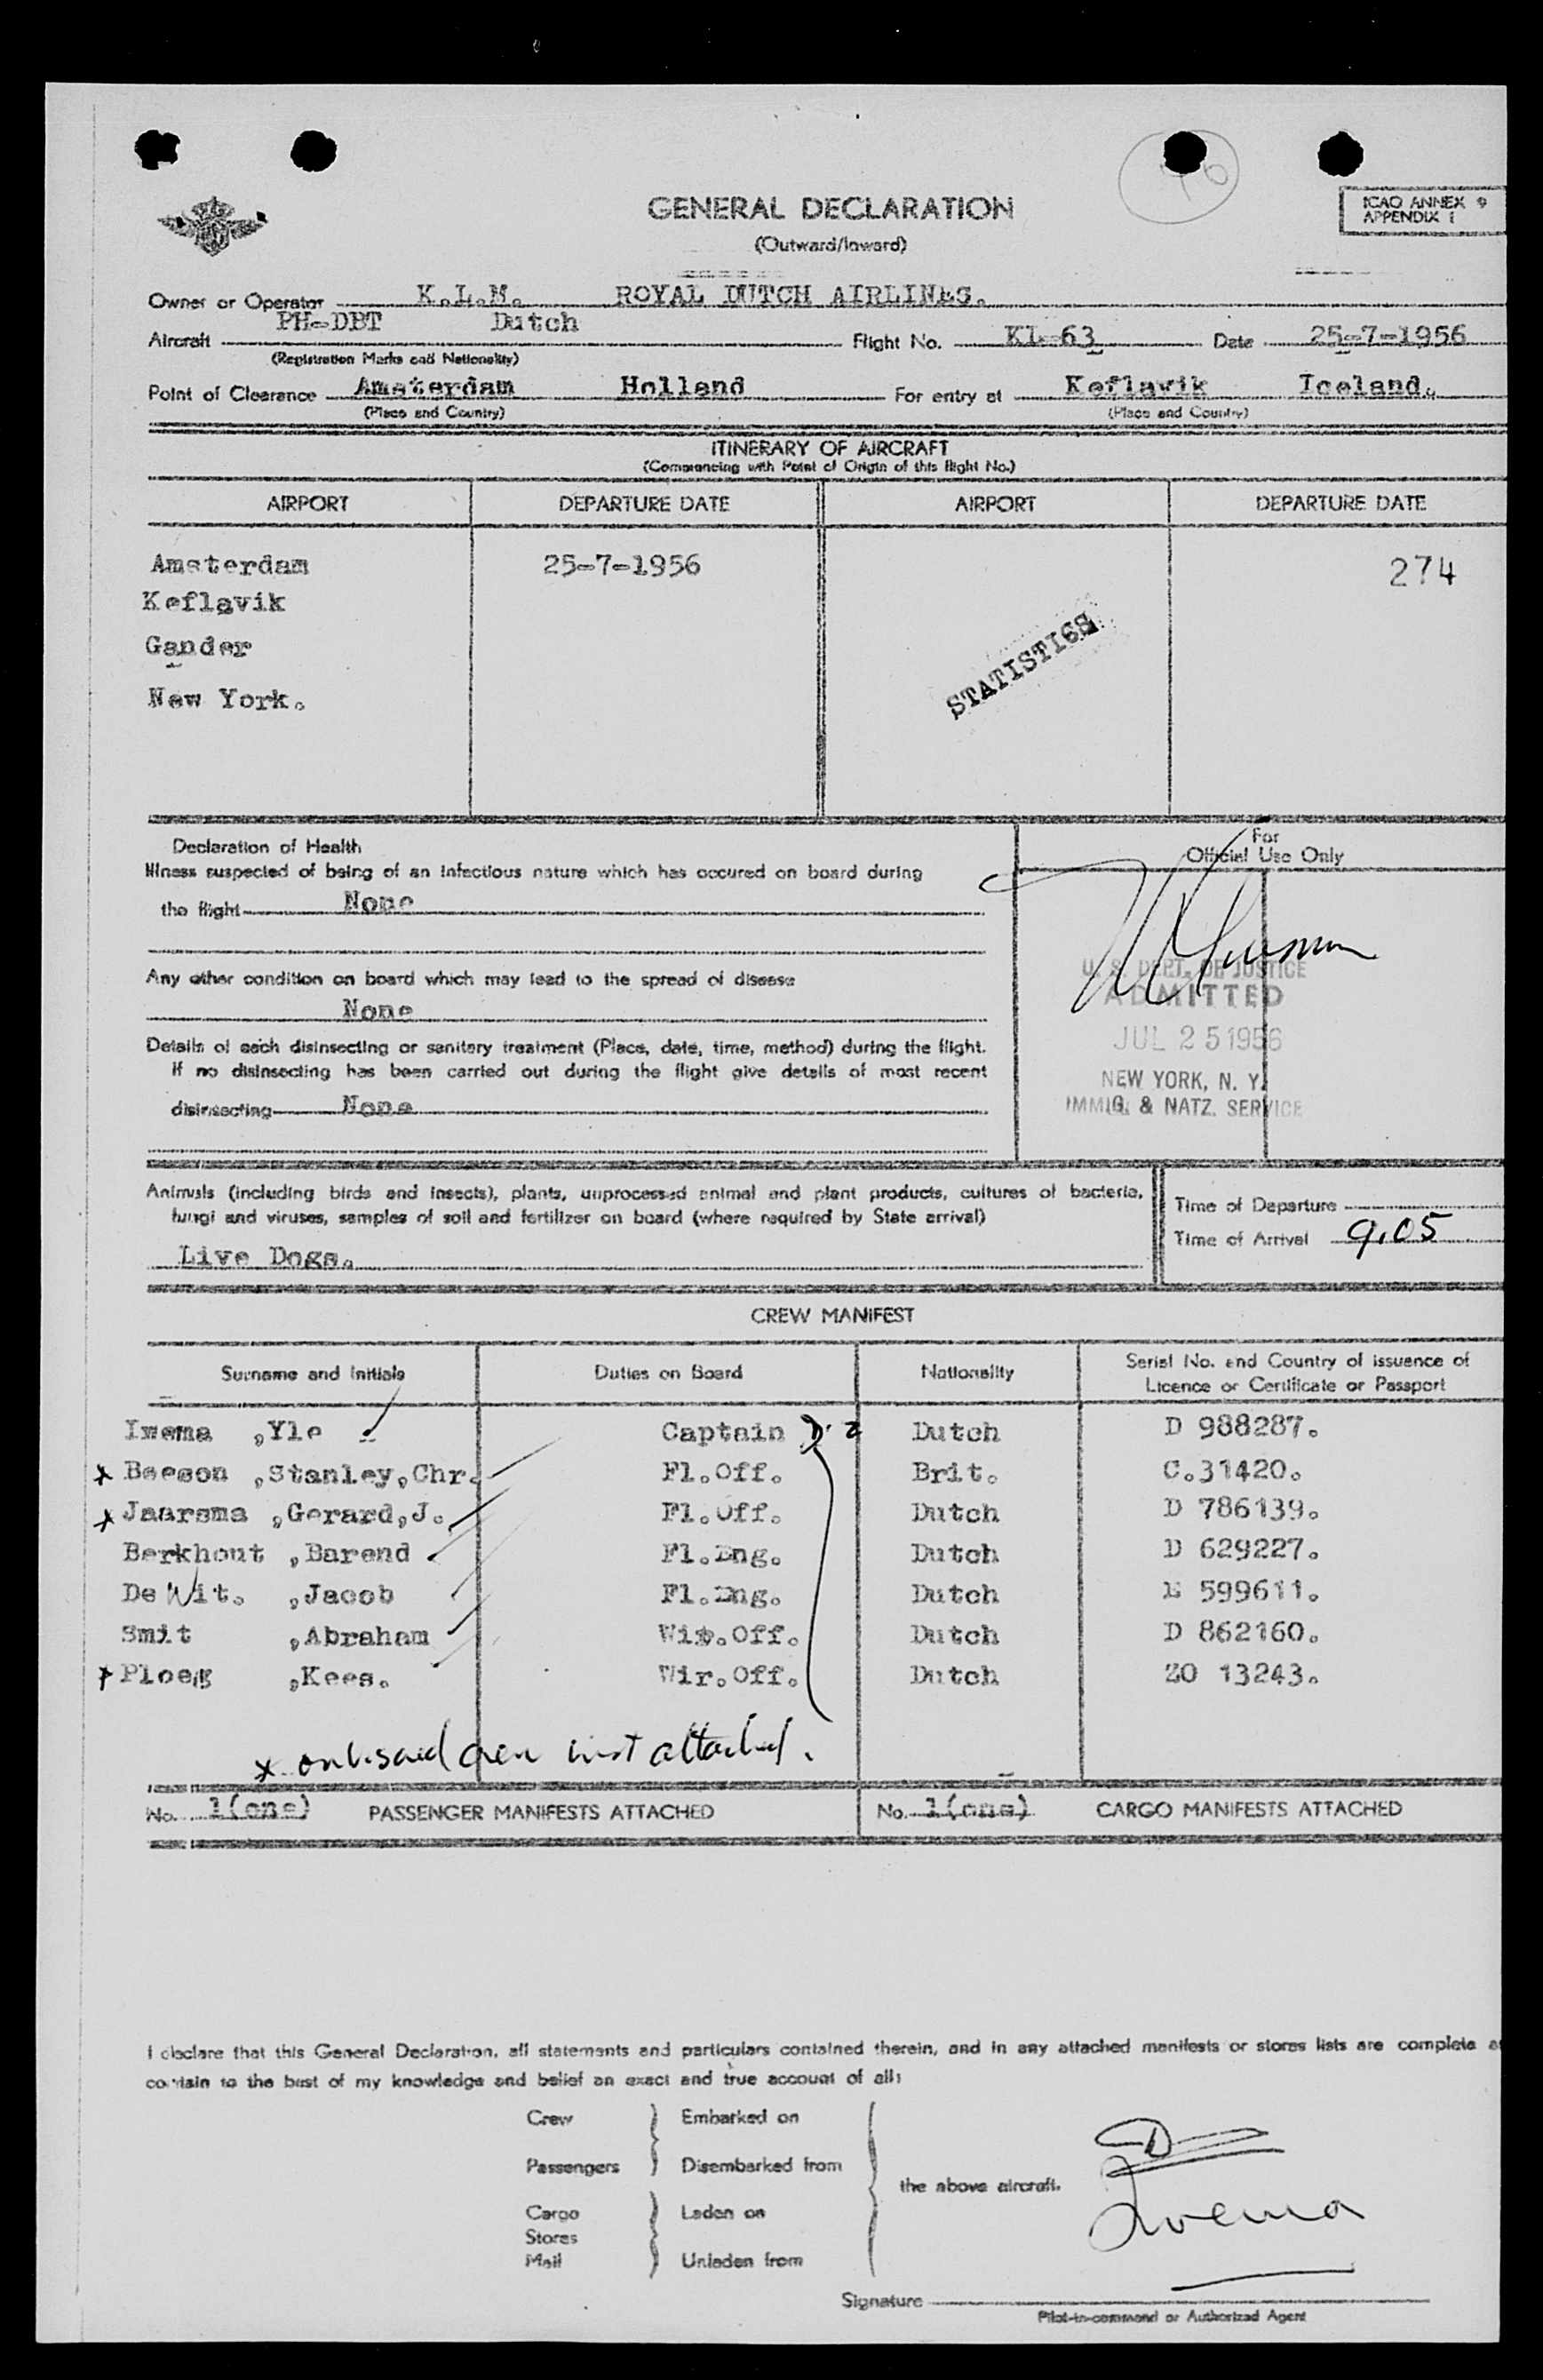 GENERAL DECLARATION
(Outward/Inward)
ICAO ANNEX 9
APPENDIX 1
Owner or Operator K.L.M. ROYAL DUTCH AIRLINES.
Aircraft PH-DBT Dutch Flight No. KL-63 Date 25-7-1956
(Registration Marks and Nationality)
Point of Clearance Amsterdam Holland For entry at Keflavik Iceland.
(Place and Country) (Place and Country)
ITINERARY OF AIRCRAFT
(Commencing with Point of Origin of this flight No.)
AIRPORT DEPARTURE DATE AIRPORT DEPARTURE DATE
Amsterdam 25-7-1956 274
Keflavik
Gander
STATISTICS
New York.
Declaration of Health
For
Official Use Only
Illness suspected of being of an infectious nature which has occured on board during
the flight None
Any other condition on board which may lead to the spread of disease
None
U. S. DEPT. OF JUSTICE
ADMITTED
JUL 25 1956
NEW YORK, N. Y.
IMMIG. & NATZ. SERVICE
Details of each disinsecting or sanitary treatment (Place, date, time, method) during the flight.
If no disinsecting has been carried out during the flight give details of most recent
disinsecting None
Animals (including birds and insects), plants, unprocessed animal and plant products, cultures of bacteria,
fungi and viruses, samples of soil and fertilizer on board (where required by State arrival)
Live Dogs.
Time of Departure
Time of Arrival 9.05
CREW MANIFEST
Surname and Initials Duties on Board Nationality Serial No. and Country of issuance of
Licence or Certificate or Passport
Iwema ,Yle Captain Dutch D 988287.
* Beeson ,Stanley,Chr. Fl.Off. Brit. C.31420.
* Jaarsma ,Gerard,J. Fl.Off. Dutch D 786139.
Berkhout ,Barend Fl.Eng. Dutch D 629227.
De Wit. ,Jacob Fl.Eng. Dutch E 599611.
Smit ,Abraham Wir.Off. Dutch D 862160.
* Ploeg ,Kees. Wir.Off. Dutch ZO 13243.
* attached.
No. 1(one) PASSENGER MANIFESTS ATTACHED No. 1(one) CARGO MANIFESTS ATTACHED
I declare that this General Declaration, all statements and particulars contained therein, and in any attached manifests or stores lists are complete a
contain to the best of my knowledge and belief an exact and true account of all:
Crew Embarked on
Passengers Disembarked from
the above aircraft.
Cargo Laden on
Stores
Mail Unladen from
Iwema
Signature
Pilot-in-command or Authorized Agent